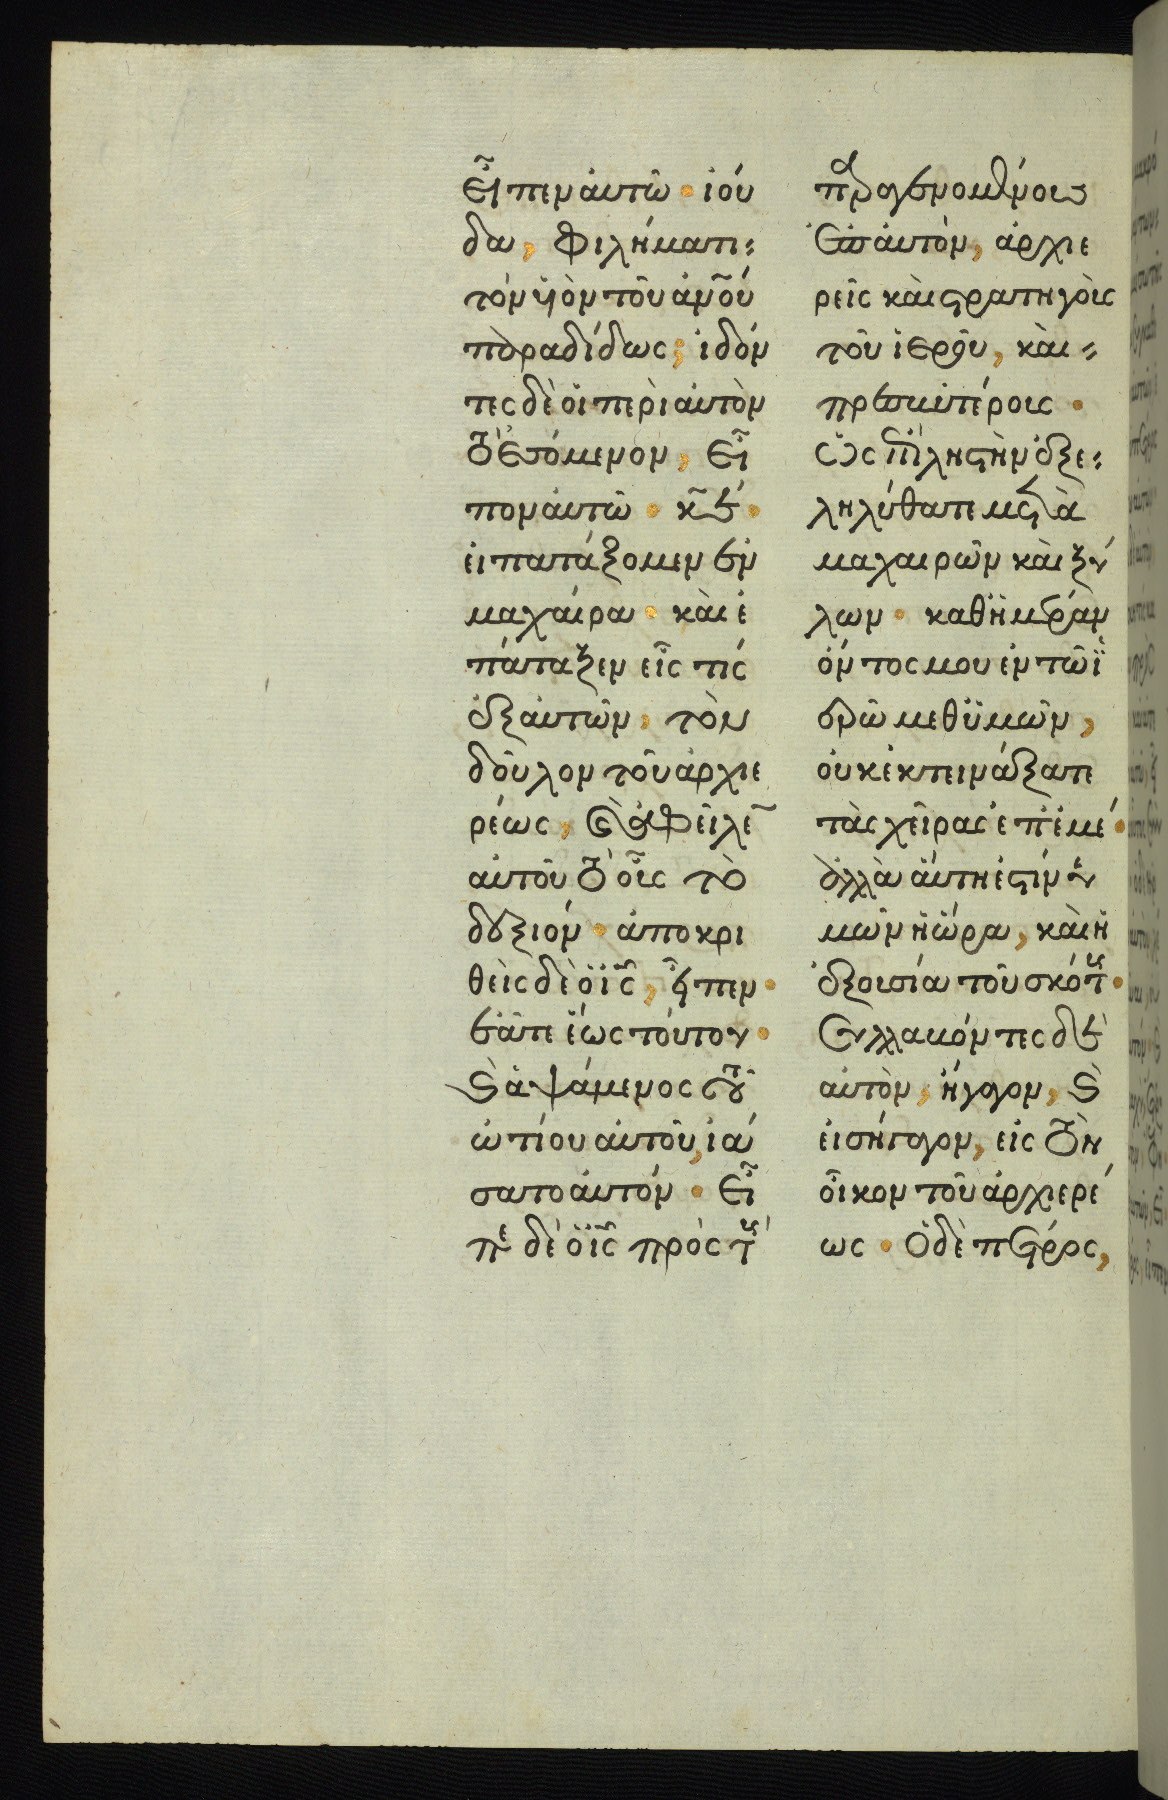 εἶπεν αὐτῶ · ἰού
δα, φιλήματι
τὸν υἱὸν τοῦ ἀν̅ου
παραδίδως; ἰδόν
τες δὲ οἱ περὶ αὐτὸν
τὸ ἐσόμενον, εἶ
πον αὐτῶ · κ̅ε ·
εἰ πατάξομεν ἐν
μαχαίρα · καὶ ἐ
πάταξεν εἷς τίς
ἐξ αὐτῶν, τὸν
δοῦλον τοῦ ἀρχιε
ρέως, καὶ ἀφεῖλε̅
αὐτοῦ τὸ οὖς τὸ
δεξιόν · ἀποκρι
θεὶς δὲ ὁ ι̅ς, εἶπεν ·
ἐᾶτε ἕως τούτου ·
καὶ ἁψάμενος τοῦ
ὠτίου αὐτοῦ, ἰά
σατο αὐτόν · εἶ
πε δὲ ὁ ι̅ς πρὸς τοὺς
παραγενομένους
ἐπ' αὐτὸν, ἀρχιε
ρεῖς καὶ στρατηγοὺς
τοῦ ἱεροῦ, καὶ
πρεσβυτέρους ·
ὡς ἐπὶ ληστὴν ἐξε
ληλύθατε μετὰ
μαχαιρῶν καὶ ξύ
λων · καθ' ἡμέραν
ὄντος μου ἐν τῶ ἱ
ερῶ μεθ' ὑμῶν,
οὐκ ἐκτεινάξατε
τὰς χεῖρας ἐπ' ἐμέ ·
ἀλλὰ αὕτη ἐστὶν ὑ
μῶν ἡ ὥρα, καὶ ἡ
ἐξουσία τοῦ σκότους ·
συλλαβόντες δὲ
αὐτὸν, ἤγαγον, καὶ
εἰσήγαγον, εἰς τὸν
οἶκον τοῦ ἀρχιερέ
ως · ὁ δὲ πέτρος,